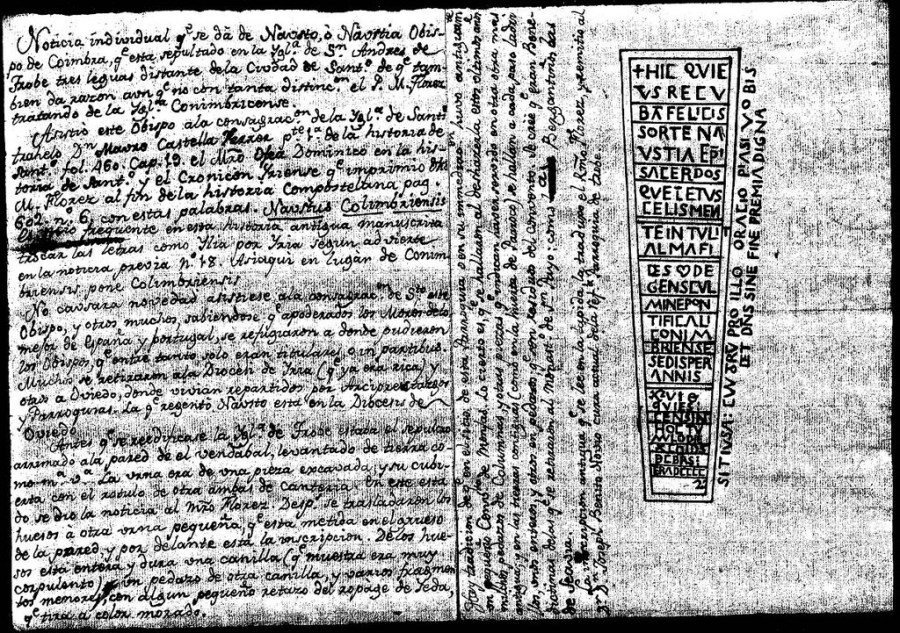 Noticia individual q.e se dá de Navsto, ò Navstia Obis-
po de Coimbra, q.e está sepultado en la Ygl.a de S.n Andres de
Trobe tres leguas distante de la Ciudad de Sant.o de q.e tam-
bien da razon aunq.e no con tanta distinc.on el P. M. Florez
tratando de la Ygl.a Conimbricense.
Asistio este Obispo a la consagrac.on de la Ygl.a de Sant.o
trahelo D.n Mauro Castella Ferrer p.te 1.a de la historia de
Sant.o fol. 460. Cap. 19. el Mro Oxea Dominico en la his-
toria de Sant.o y el Cronicon Iriense q.e imprimio el
M. Florez al fin de la historia Compostellana pag.
602. n. 6, con estas palabras. Naustus Colimbriensis
frequente en esta historia antigua manuscrita
trocar las letras como Ylia por Yria segun advierte
en la noticia previa n.o 18. Asi aqui en lugar de Conim
briensis pone Colimbriensis
No causara novedad asistiese a la consagrac.on de S.to este
Obispo, y otros muchos, sabiendose q.e apoderados los Moros de lo
mas de España y portugal, se refugiaron a donde pudieron
los Obispos, q.e entre tanto solo eran titulares, o in partibus.
Muchos se retiraron a la Diocesi de Yria (q.e ya era rica) y
otros a Oviedo, donde vivian repartidos por Arciprestazgos
y Parroquias. La q.e regentó Navsto esta en la Diocesis de
Oviedo
Antes q.e se reedificase la Ygl.a de Trobe estaba el sepulcro
arrimado a la pared de el vendabal, levantado de tierra co-
mo m.a v.a La vrna era de vna pieza excavada, y su cubi-
erta con el rotulo de otra ambas de canteria. en este esta
do se dio la noticia al Mro Florez. Desp.s se trasladaron los
huesos a otra vrna pequeña, q.e esta metida en el grueso
de la pared, y por delante está la inscripcion. De los hue-
sos esta entera y dura una canilla (q.e muestra era muy
corpulento) un pedazo de otra canilla, y varios fragmen
tos menores, con algun pequeño retazo del ropage de seda,
q.e tira a color morado.
Hay tradicion de q.e en el sitio de esta Parroquia o en su inmediacion huvo antiguam
un pequeño Conv.to de Monjas. Lo cierto es q.e se hallaron al deshacerla
pedazos de Columnas, y otras piezas q.e indican haver servido en otra obra mas
antigua, y en las tierras contiguas (como en la huerta del parroco) se hallan a cada paso ladri-
llos, unos enteros, y otros en pedazos, q.e son residuo del convento. Se cree q.e eran Bene-
dictinas, y que se retiraron al Monast.o de S.n Payo; como Bergantiños las
de Seavia.
La inscripcion antigua q.e se lee en la lapida la traduxo el R.mo Florez, y remitio al
S.r D.n Joseph Benito Moro cura actual de la Parroquia de trobe.
+HIC QVIE
VS RECV
BA FELICIS
SORTE NA
VSTIA EPI
SACERDOS
QVE LETVS
CELIS MEN
TE INTVLIT
ALMA FI
DES ♡ DE
GENS CVL
MINE PON
TIFICALI
CONIM
BRIENSE
SEDIS PER
ANNIS
SI TIVSA: CVV
PRO ILLO ORATIO PIA SI VOBIS
DET DNS SINE FINE PREMIA DIGNA